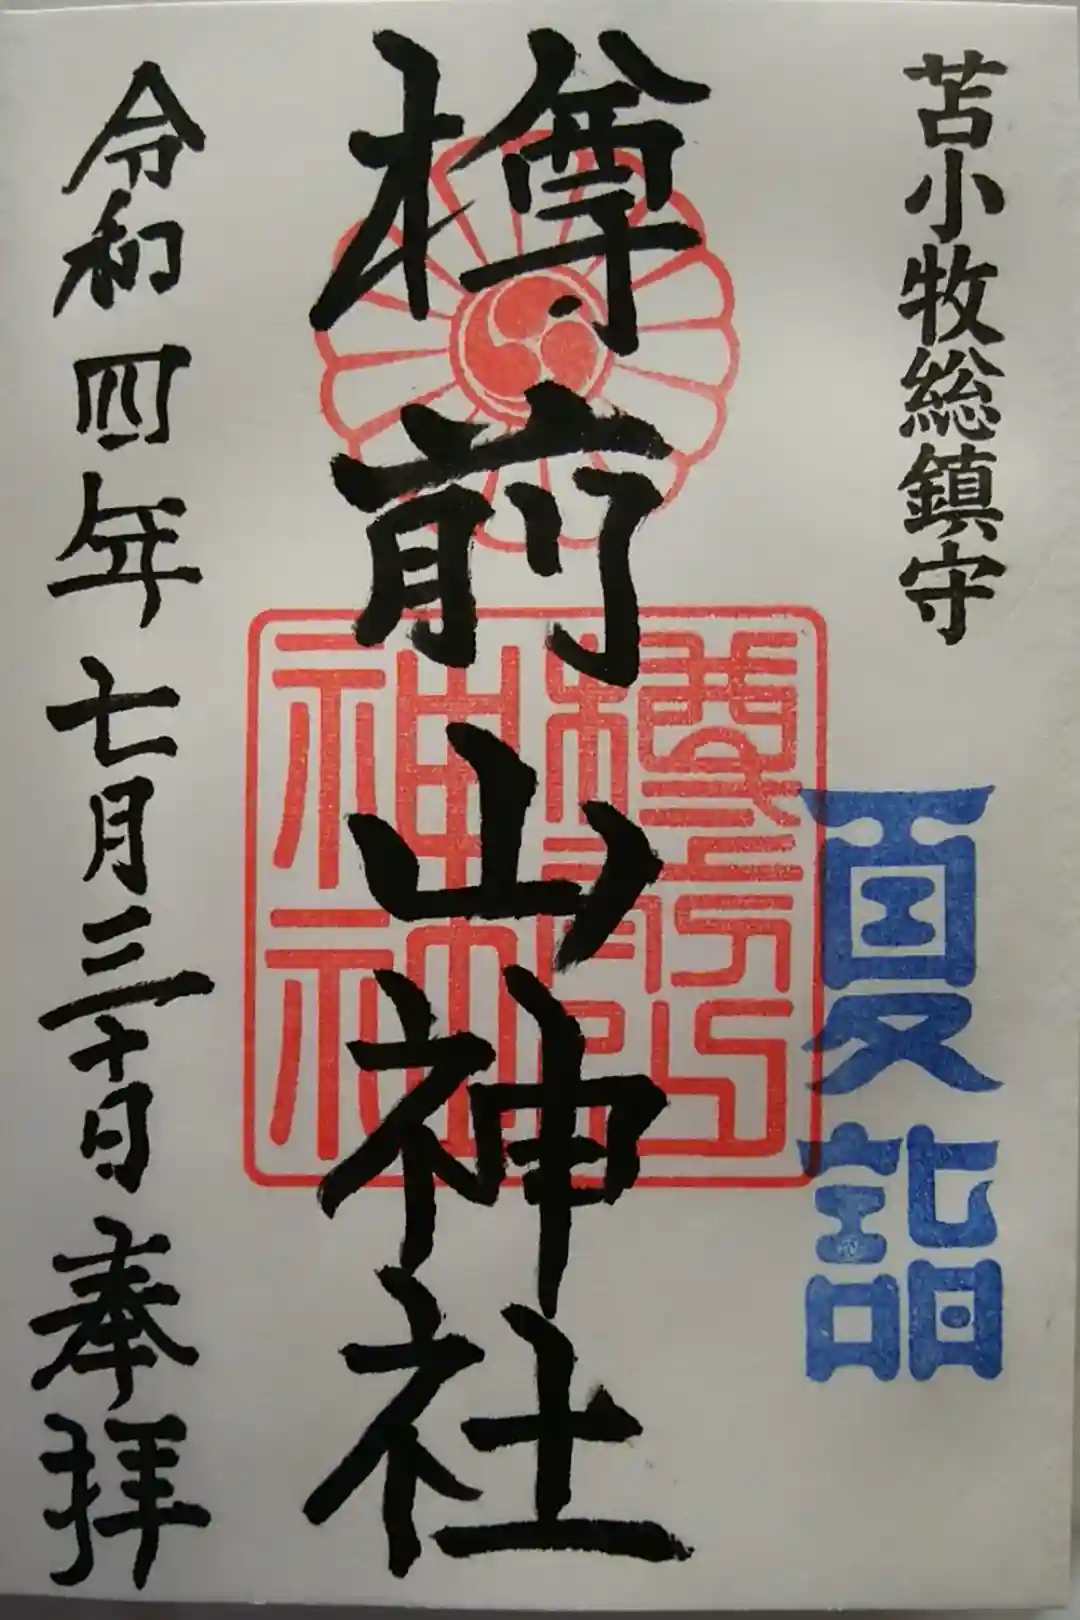 苫小牧総鎮守
夏詣
樽前山神社
令和四年七月三十日奉拝